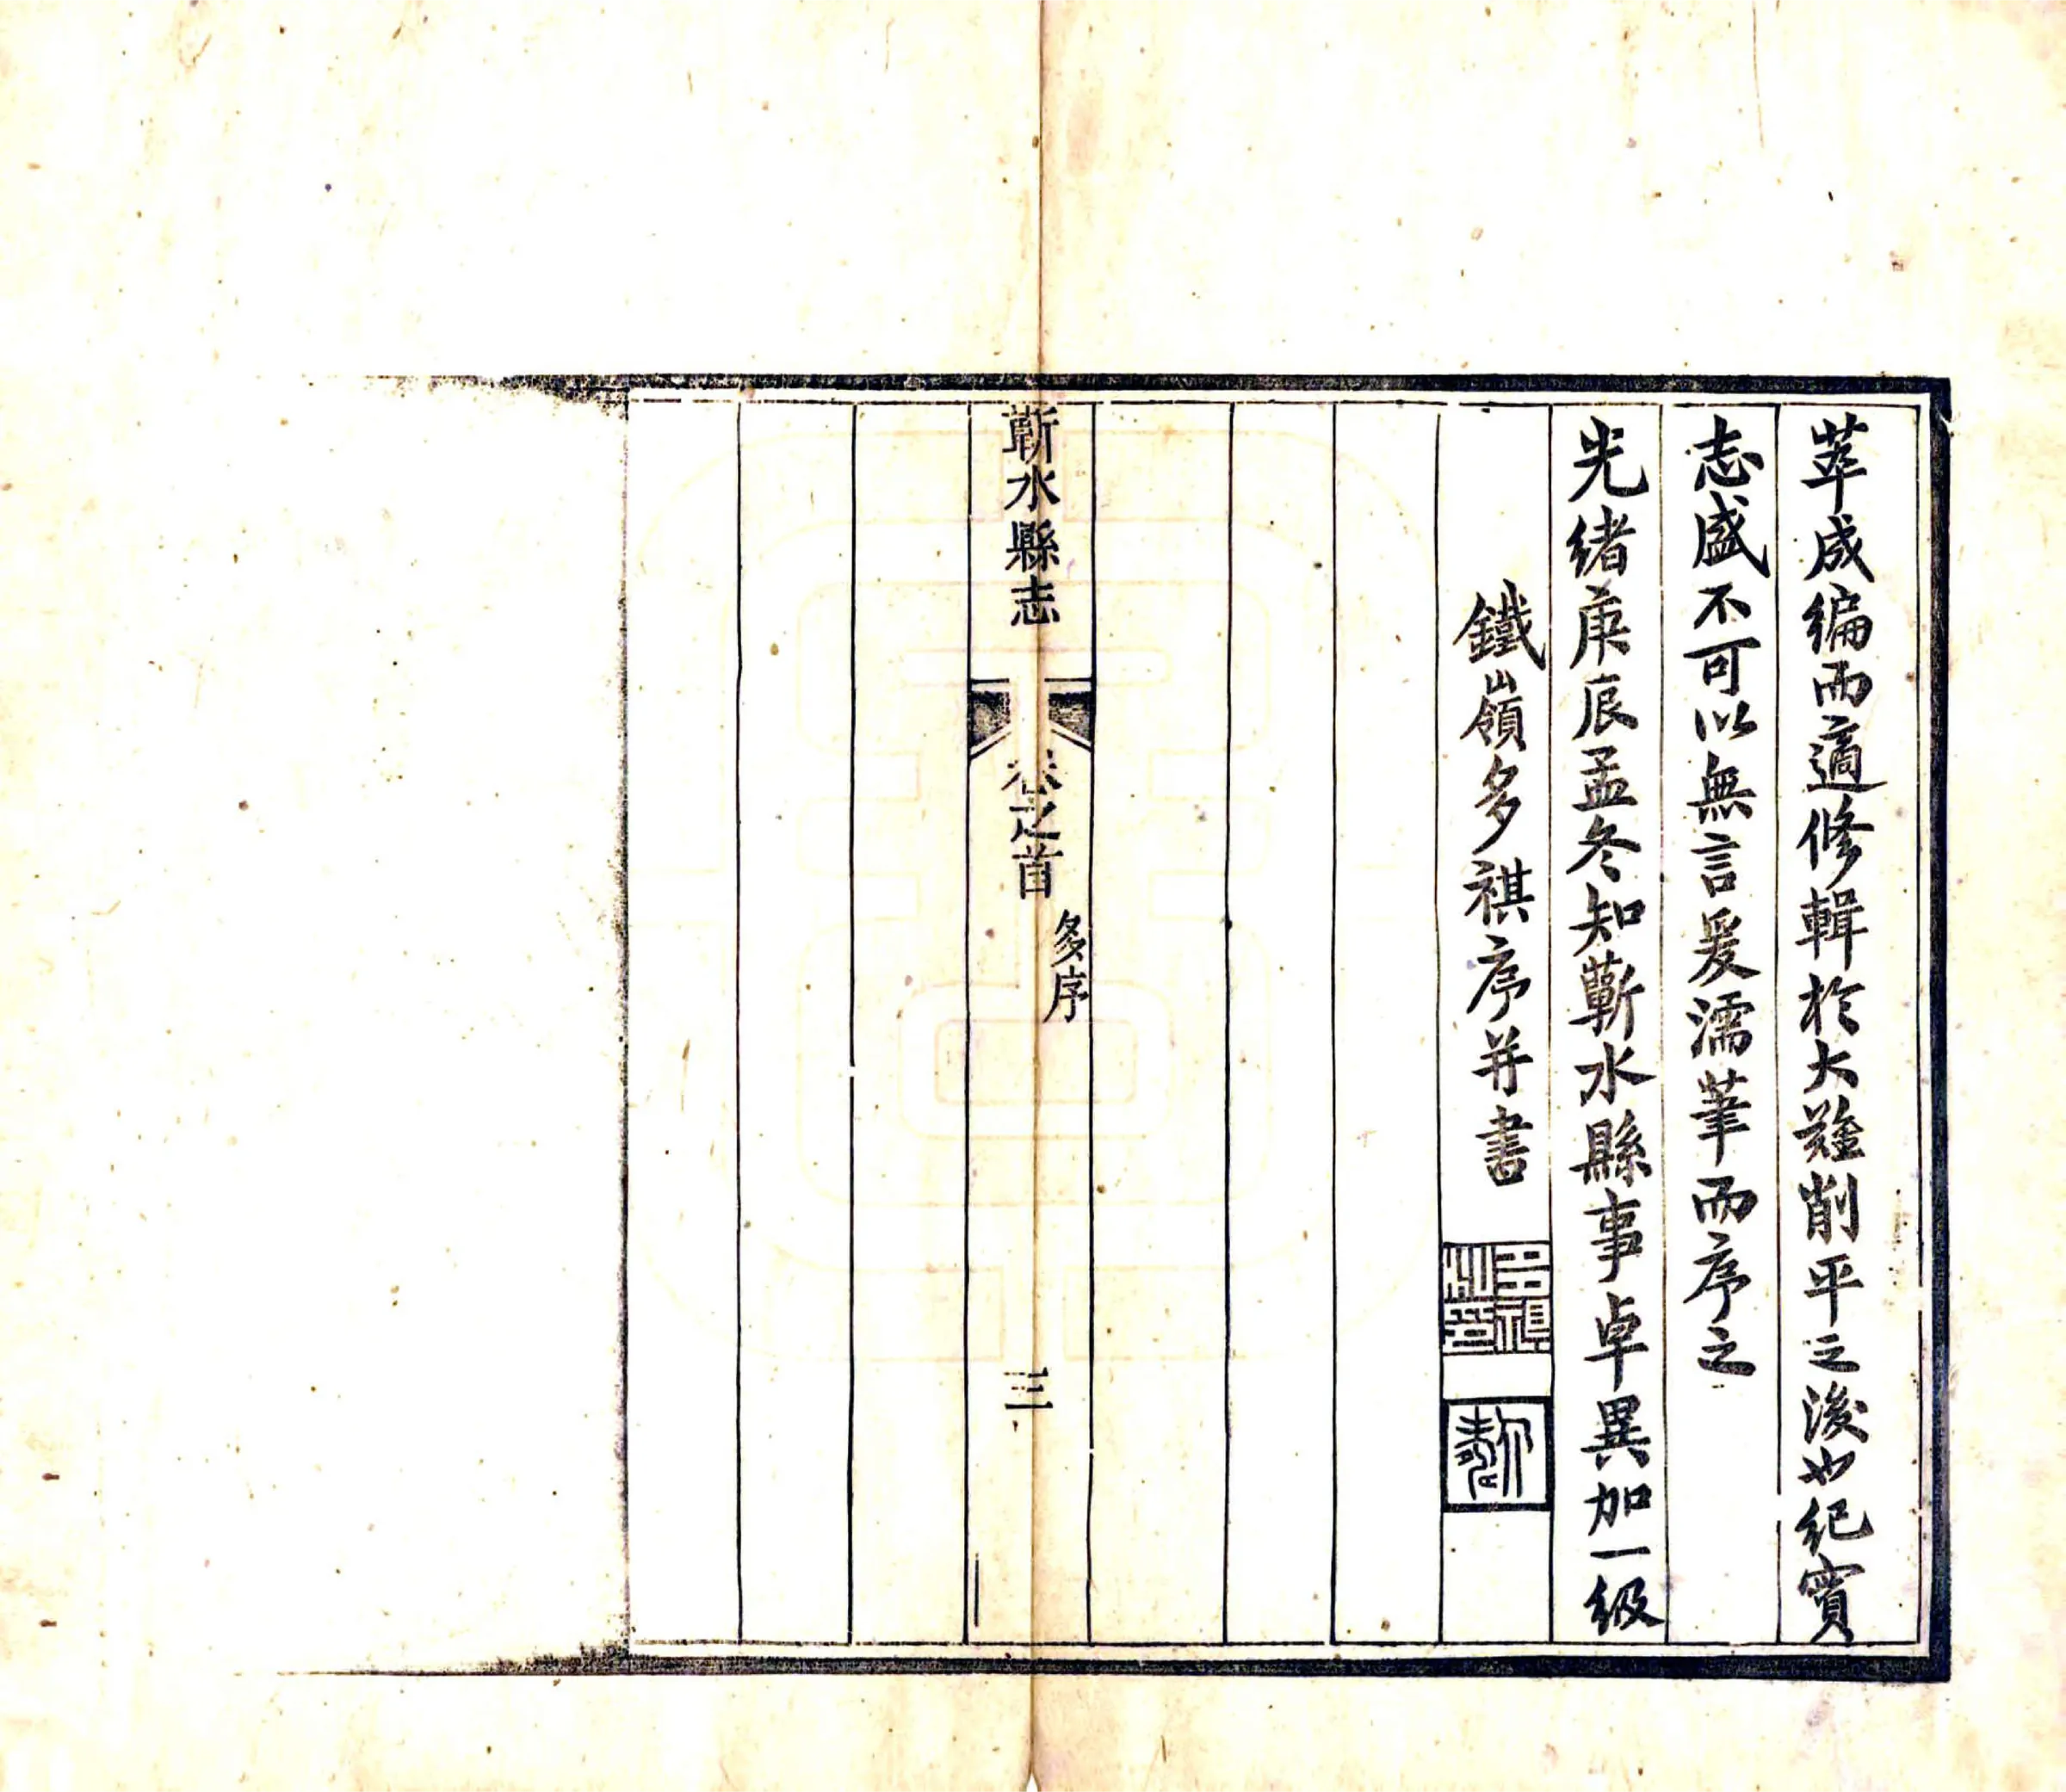 萃成編而適修輯於大難削平之後也紀實
志盛不可以無言爰濡筆而序之
光緒庚辰孟冬知蘄水縣事卓異加一級
鐵嶺多祺序并書
蘄水縣志
卷之首
多序
三